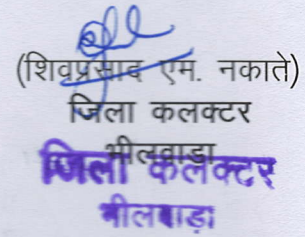 (शिवप्रसाद एम. नकाते)
जिला कलक्टर
भीलवाड़ा
जिला कलक्टर
भीलवाड़ा